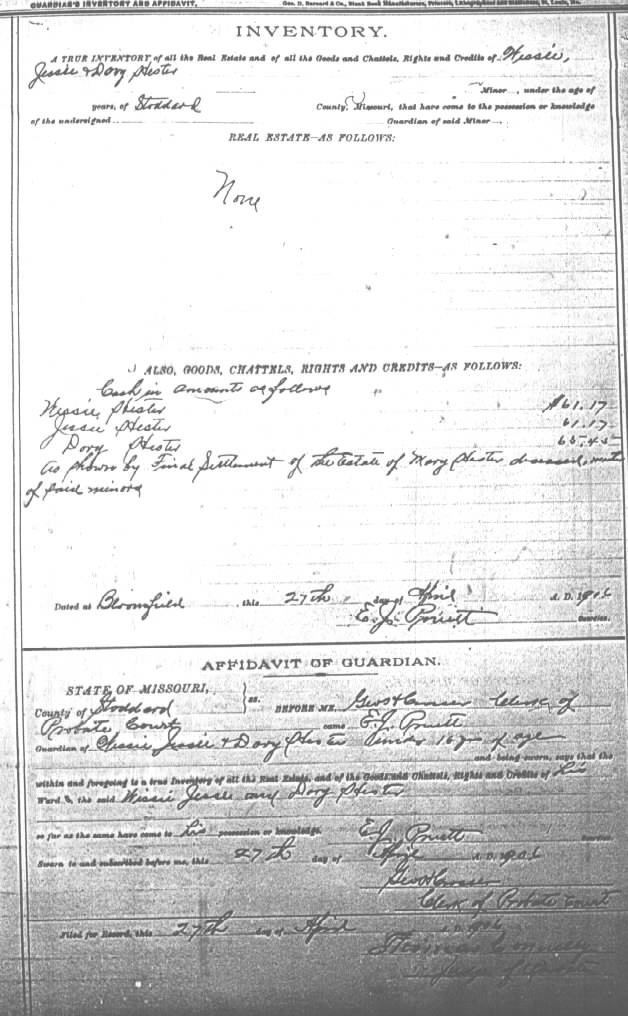 GUARDIAN'S INVENTORY AND AFFIDAVIT.
Geo. D. Barnard & Co., Blank Book Manufacturers, Printers, Lithographers and Stationers, St. Louis, Mo.
INVENTORY.
A TRUE INVENTORY of all the Real Estate and of all the Goods and Chattels, Rights and Credits of Wessie,
Jessie & Dory Hester
Minor , under the age of
years, of Stoddard County, Missouri, that have come to the possession or knowledge
of the undersigned Guardian of said Minor .
REAL ESTATE—AS FOLLOWS:
None
ALSO, GOODS, CHATTELS, RIGHTS AND CREDITS—AS FOLLOWS:
Cash in amounts as follows
Wessie Hester $61.17
Jessie Hester 61.17
Dory Hester 65.45
as shown by Final Settlement of the Estate of Mary Hester deceased,
of said minors
Dated at Bloomfield , this 27th day of April A. D. 1906
E. J. Pruett Guardian.
AFFIDAVIT OF GUARDIAN.
STATE OF MISSOURI,
County of Stoddard ss. BEFORE ME, Geo Clerk of
Probate Court came E. J. Pruett
Guardian of Wessie Jessie & Dory Hester under 16 yrs of age
and being sworn, says that the
within and foregoing is a true Inventory of all the Real Estate, and of the Goods and Chattels, Rights and Credits of his
Ward s, the said Wessie Jessie and Dory Hester
so far as the same have come to his possession or knowledge. E. J. Pruett Guardian.
Sworn to and subscribed before me, this 27th day of April A. D. 1906
Geo
Clerk of Probate Court
Filed for Record, this 27th day of April A. D. 1906
Thomas Connelly
Judge of Probate